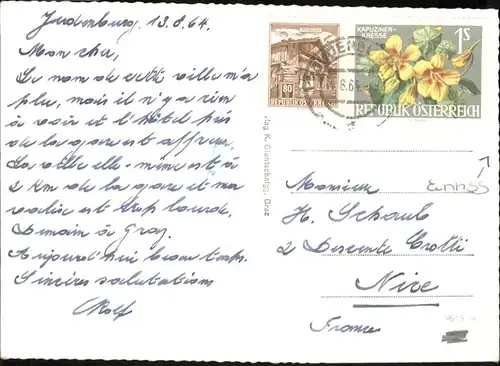 Judenburg, 13.8.64.
Mon cher,
Le nom de cette ville m'a
plu, mais il n'y a rien
à voir et l'hôtel près
de la gare est affreux.
La ville elle-même est à
2 km de la gare et ma
valise est trop lourde.
Demain à Graz.
Aujourd'hui beau temps.
Sincères salutations
Rolf
80
REPUBLIK ÖSTERREICH
KAPUZINER-
KRESSE
1S
REPUBLIK ÖSTERREICH
Graz
Monsieur
H. Schaub
2 Descente Crotti
Nice
France